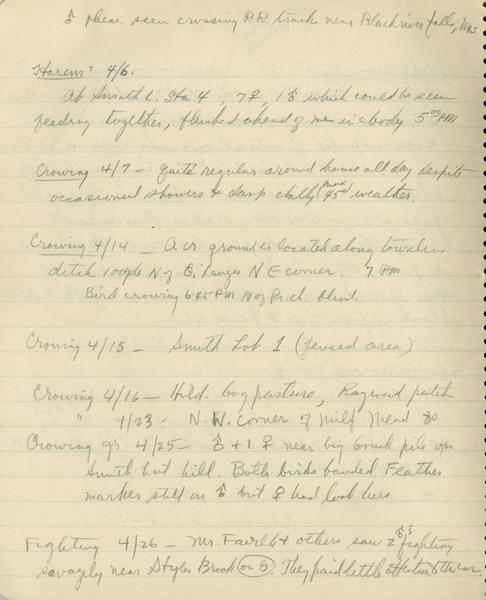 ♂ pheas. seen crossing RR track near Black river falls, Wis
Harems? 4/6.
At Smith L. Sta 4, 7♀, 1♂ which could be seen
feeding together, flushed ahead of me in a body 5:00 PM
Crowing 4/7 - Quite regular around house all day despite
occasional showers & damp chilly (max 45°) weather.
Crowing 4/14 - A cr. ground is located along townline
ditch 100 yds N of O. NE corner 7 PM
Bird crowing PM N of
Crowing 4/15 - Smith Lot 1 (fenced area)
Crowing 4/16 - Hild. bog pasture, Ragweed patch
" 4/23 - N.W. corner of Milf. Mead. 80
Crowing gr. 4/25 - ♂ + 1 ♀ near big brush pile on
Smith Lot hill. Both birds banded. Feather
marker still on ♂ but ♀ had lost hers.
Fighting 4/26 - Mr. & others saw 2 ♂♂ fighting
savagely near Styles Brook (on G). They paid little attention to the car.